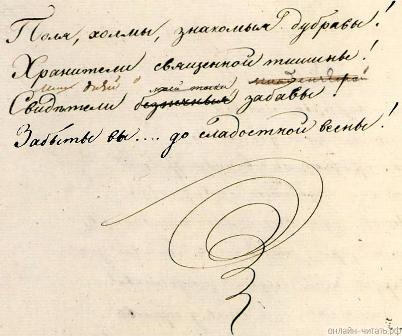 Поля, холмы, знакомыя дубравы!
Хранители священной тишины!
моей тоски
Свидѣтели забавы!
Забыты вы.... до сладостной весны!
онлайн-читать.рф